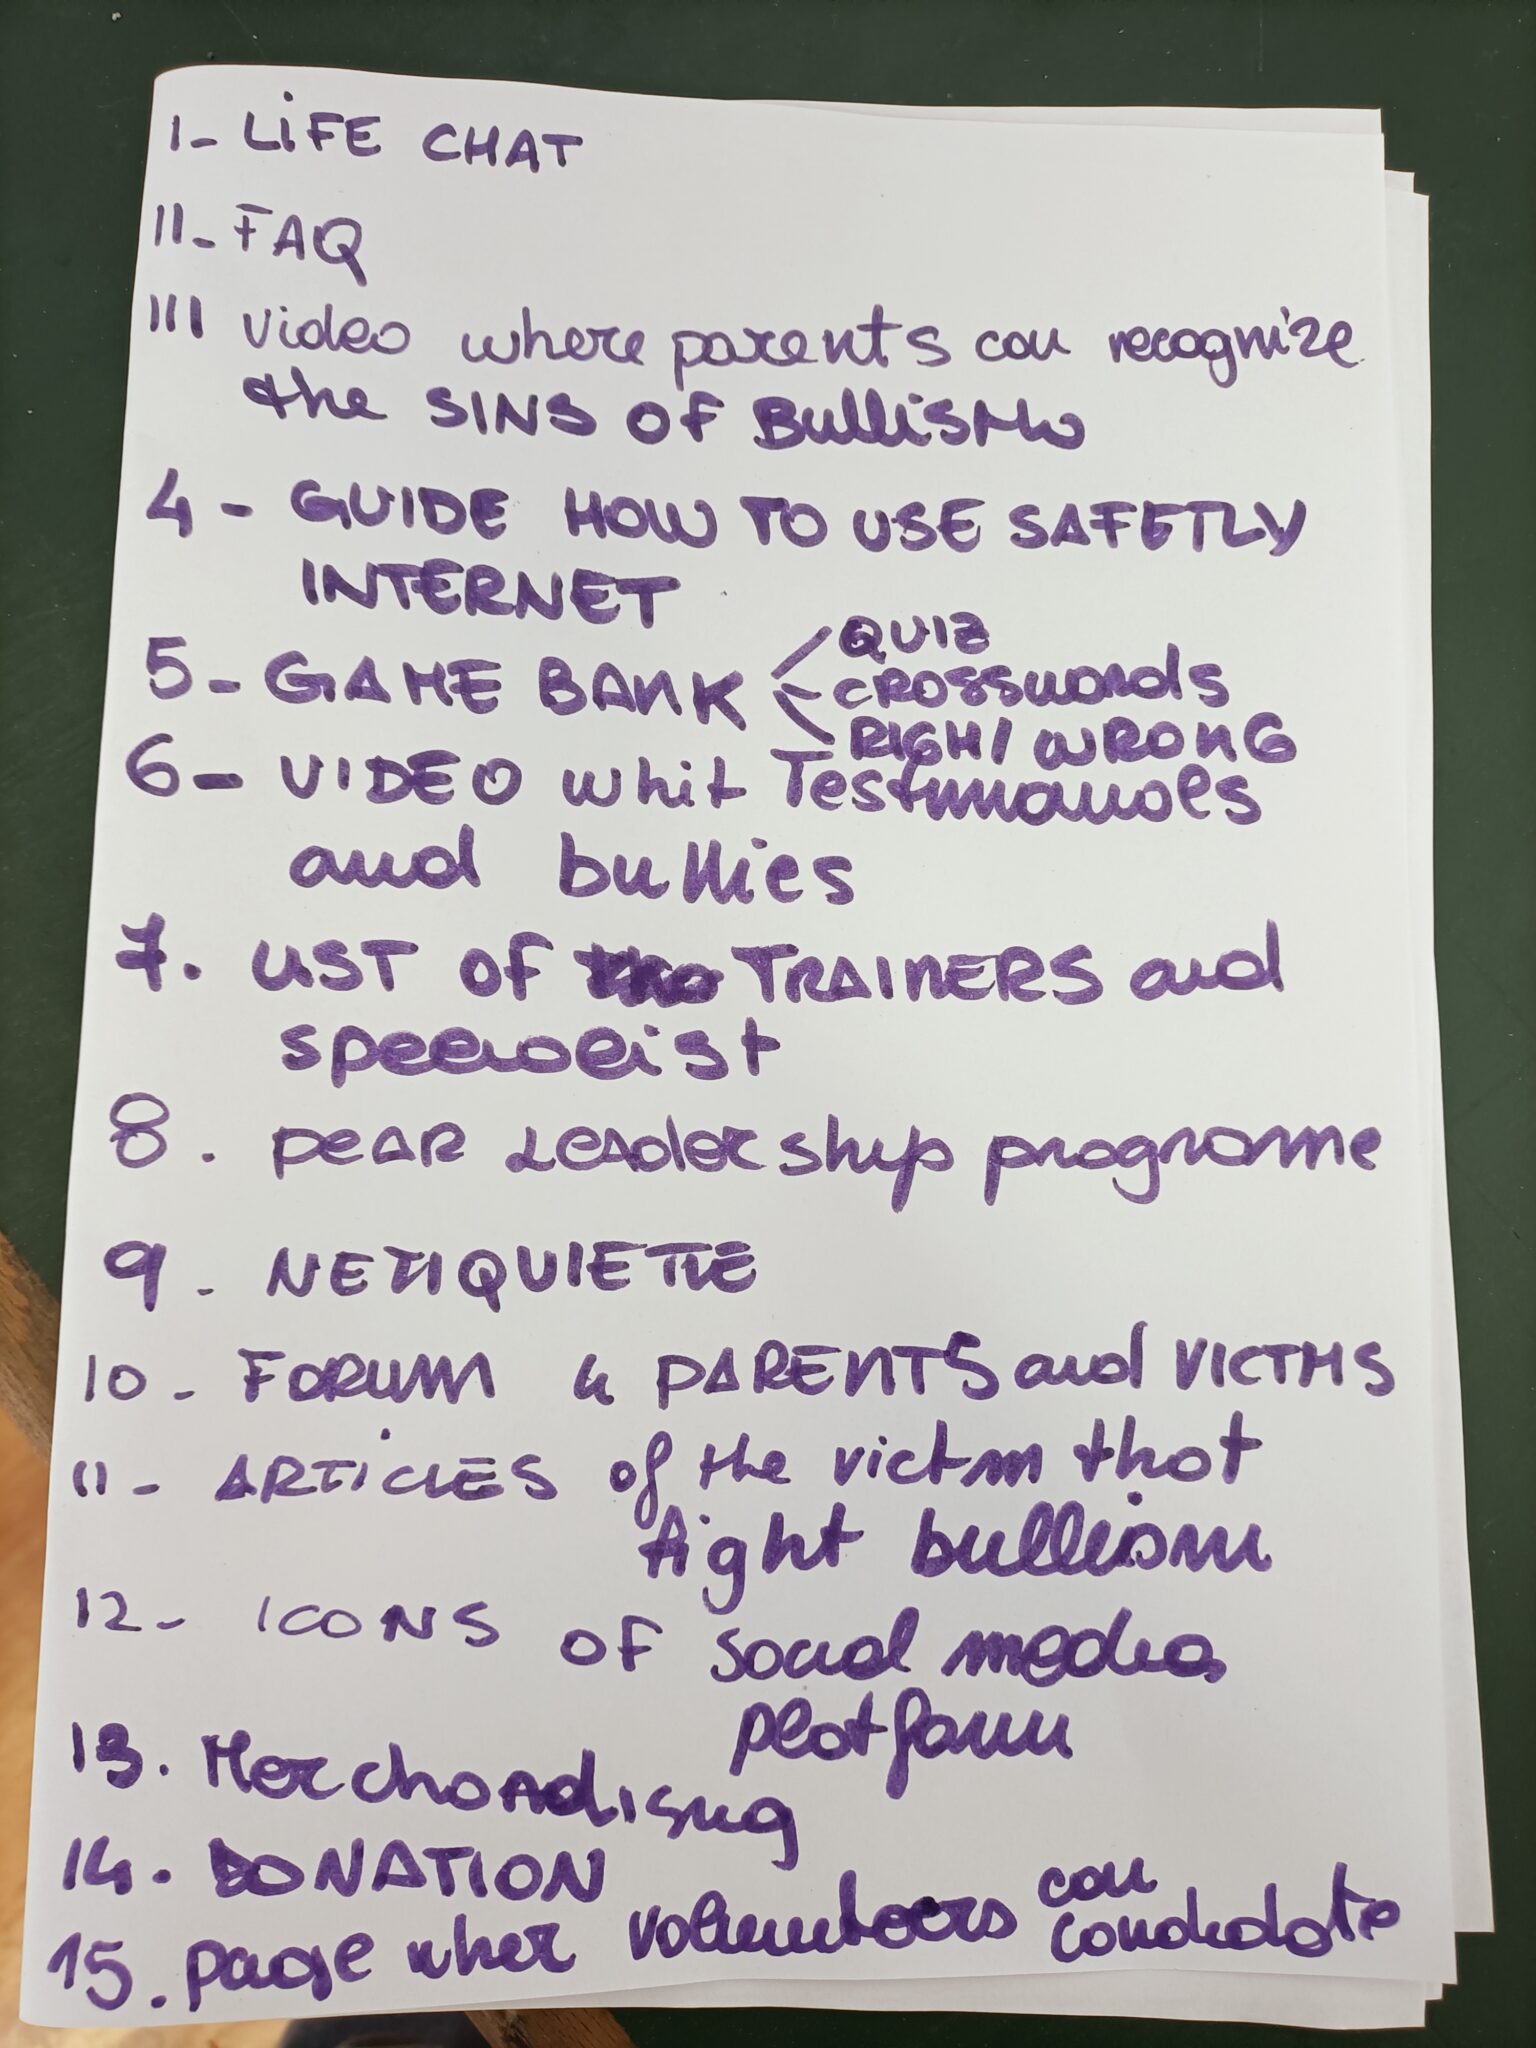 I- LiFE CHAT
II- FAQ
III video where parents can recognize
the SINS OF BullisMo
4- GUIDE HOW TO USE SAFETLY
INTERNET
5- GAME BANK QUIZ
CROSSwords
RIGH/ WRONG
6- VIDEO whit Testimonials
and bullies
7. LIST OF TRAINERS and
specialist
8. peAR LeAdership programe
9. NETIQUIETTE
10- FORUM 4 PARENTS and VICTMS
11- ARTiCLES of the victm that
fight bullism
12- ICONS OF social media
platform
13. Merchandising
14. DONATION
15. page wher volunteers can
candidate